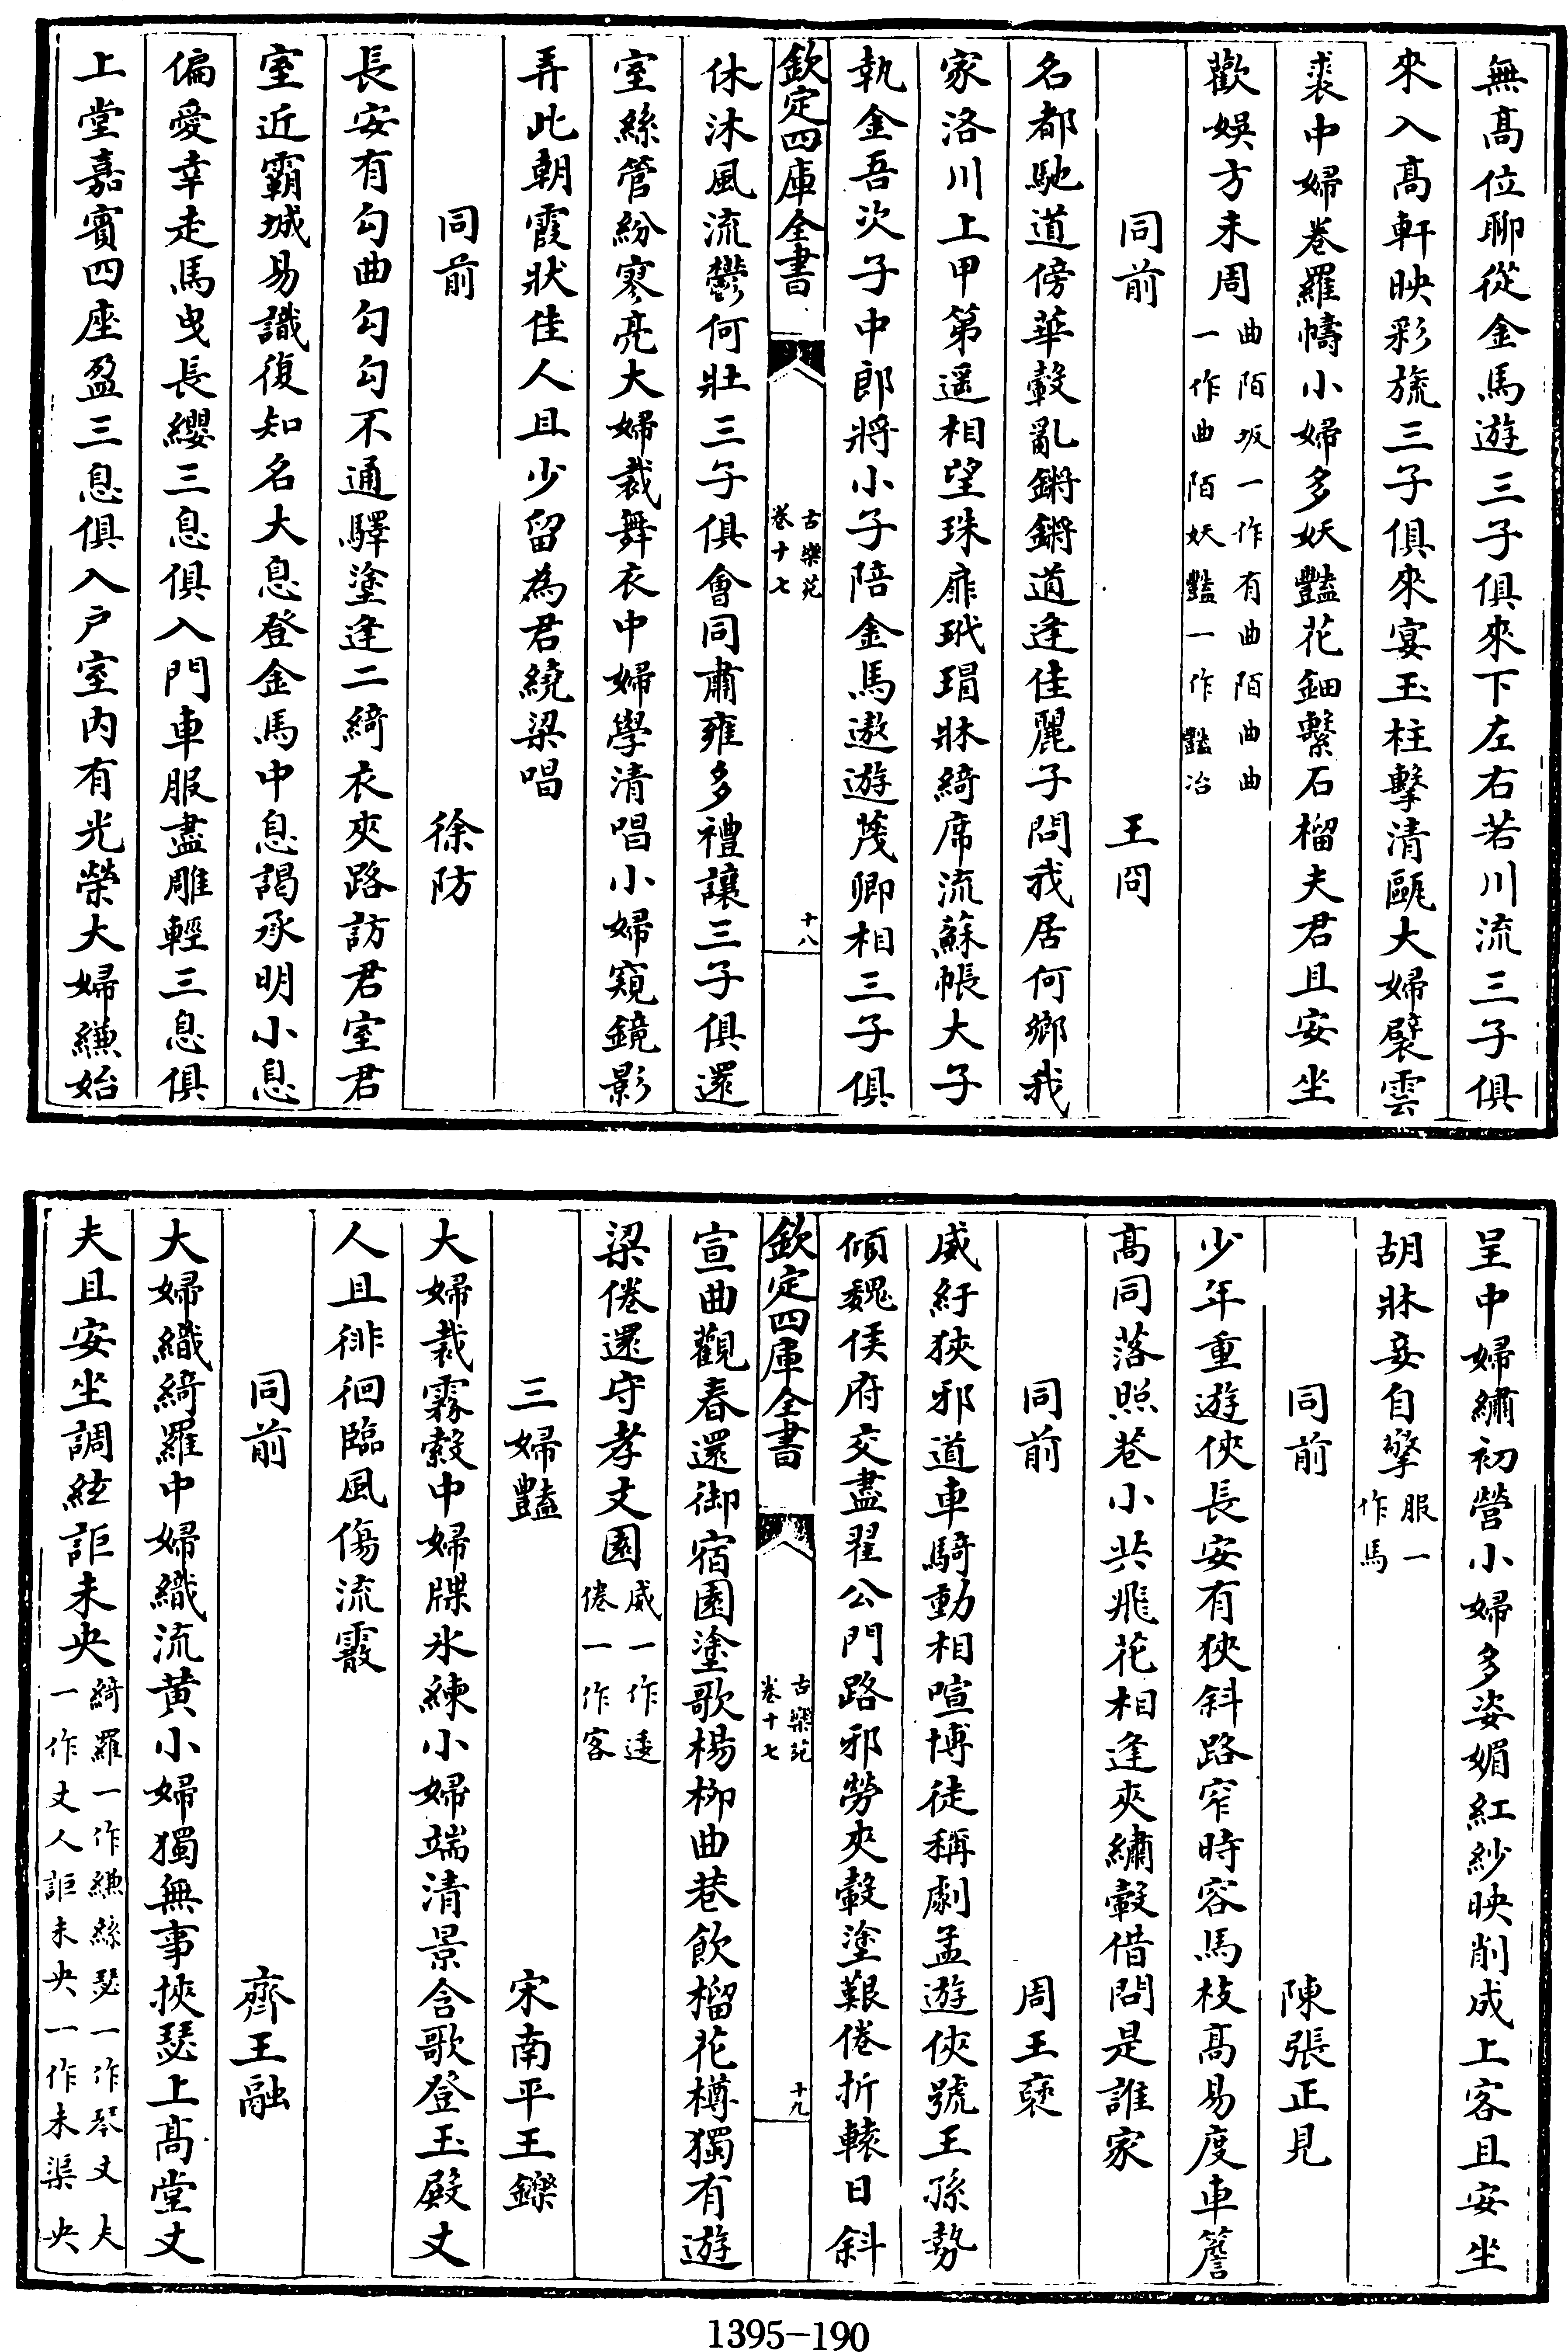 無高位聊從金馬遊三子俱來下左右若川流三子俱
來入高軒映彩旒三子俱來宴玉柱擊清甌大婦襞雲
裘中婦卷羅幬小婦多妖豔花鈿繫石榴夫君且安坐
歡娛方未周曲陌坂一作有曲陌曲曲一作曲陌妖豔一作豔冶
同前 王冏
名都馳道傍華轂亂鏘鏘道逢佳麗子問我居何鄉我
家洛川上甲第遥相望珠扉玳瑁牀綺席流蘇帳大子
執金吾次子中郎將小子陪金馬遨遊茂卿相三子俱
欽定四庫全書 古樂苑卷十七 十八
休沐風流鬱何壯三子俱會同肅雍多禮讓三子俱還
室絲管紛寥亮大婦裁舞衣中婦學清唱小婦窺鏡影
弄此朝霞狀佳人且少留為君繞梁唱
同前 徐防
長安有勾曲勾勾不通驛塗逢二綺衣夾路訪君室君
室近霸城易識復知名大息登金馬中息謁承明小息
偏愛幸走馬曳長纓三息俱入門車服盡雕輕三息俱
上堂嘉賓四座盈三息俱入戶室内有光榮大婦縑始
呈中婦繡初營小婦多姿媚紅紗映削成上客且安坐
胡牀妾自擎服一作馬
同前 陳張正見
少年重遊俠長安有狹斜路窄時容馬枝高易度車簷
高同落照巷小共飛花相逢夾繡轂借問是誰家
同前 周王褒
威紆狹邪道車騎動相喧博徒稱劇孟遊俠號王孫勢
傾魏侯府交盡翟公門路邪勞夾轂塗艱倦折轅日斜
欽定四庫全書 古樂苑卷十七 十九
宣曲觀春還御宿園塗歌楊柳曲巷飲榴花樽獨有遊
梁倦還守孝文園威一作逶倦一作客
三婦豔 宋南平王鑠
大婦裁霧縠中婦牒氷練小婦端清景含歌登玉殿丈
人且徘徊臨風傷流霰
同前 齊王融
大婦織綺羅中婦織流黄小婦獨無事挾瑟上高堂丈
夫且安坐調絃詎未央綺羅一作縑絲瑟一作琴丈夫一作丈人詎未央一作未渠央
1395-190